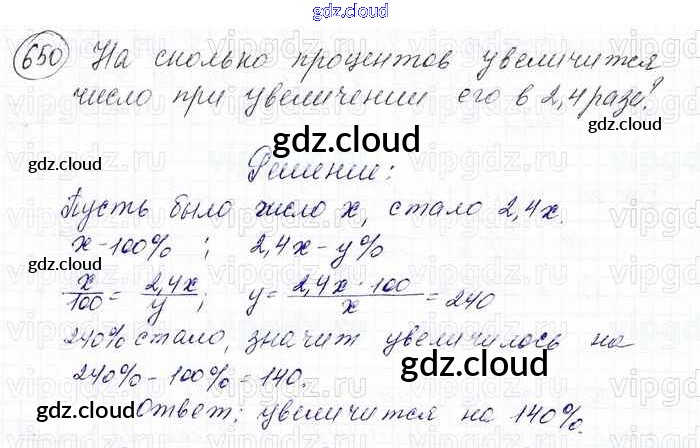 gdz.cloud
650 На сколько процентов увеличится
число при увеличении его в 2,4 раза?
gdz.cloud
gdz.cloud
gdz.cloud
Решение:
Пусть было число x, стало 2,4x.
x - 100% ; 2,4x - y%
gdz.cloud
gdz.cloud
x/100 = 2,4x/y ; y = 2,4x · 100/x = 240
240% стало, значит увеличилось на
240% - 100% = 140.
gdz.cloud
gdz.cloud
Ответ: увеличится на 140%.